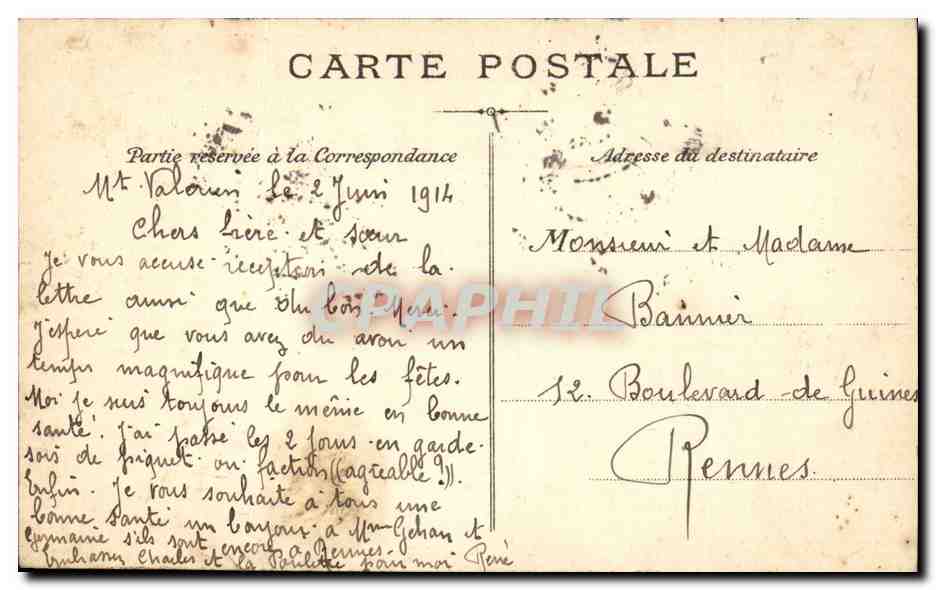 CARTE POSTALE
Partie réservée à la Correspondance
Mt Valérien le 2 Juin 1914
Chers frère et sœur
Je vous accuse réception de la
lettre ainsi que du bois. Merci.
J'espère que vous avez du avoir un
temps magnifique pour les fêtes.
Moi je suis toujours le même en bonne
santé. J'ai passé les 2 jours en garde
sois de piquet ou faction ((agréable?)).
Enfin. Je vous souhaite à tous une
bonne santé un bonjour a Mme Gehan et
Germaine s'ils sont encore a Rennes.
Embrasser Charles et la Paulette pour moi René
Adresse du destinataire
Monsieur et Madame
Bannier
12. Boulevard de Guines
Rennes.
CPAPHIL